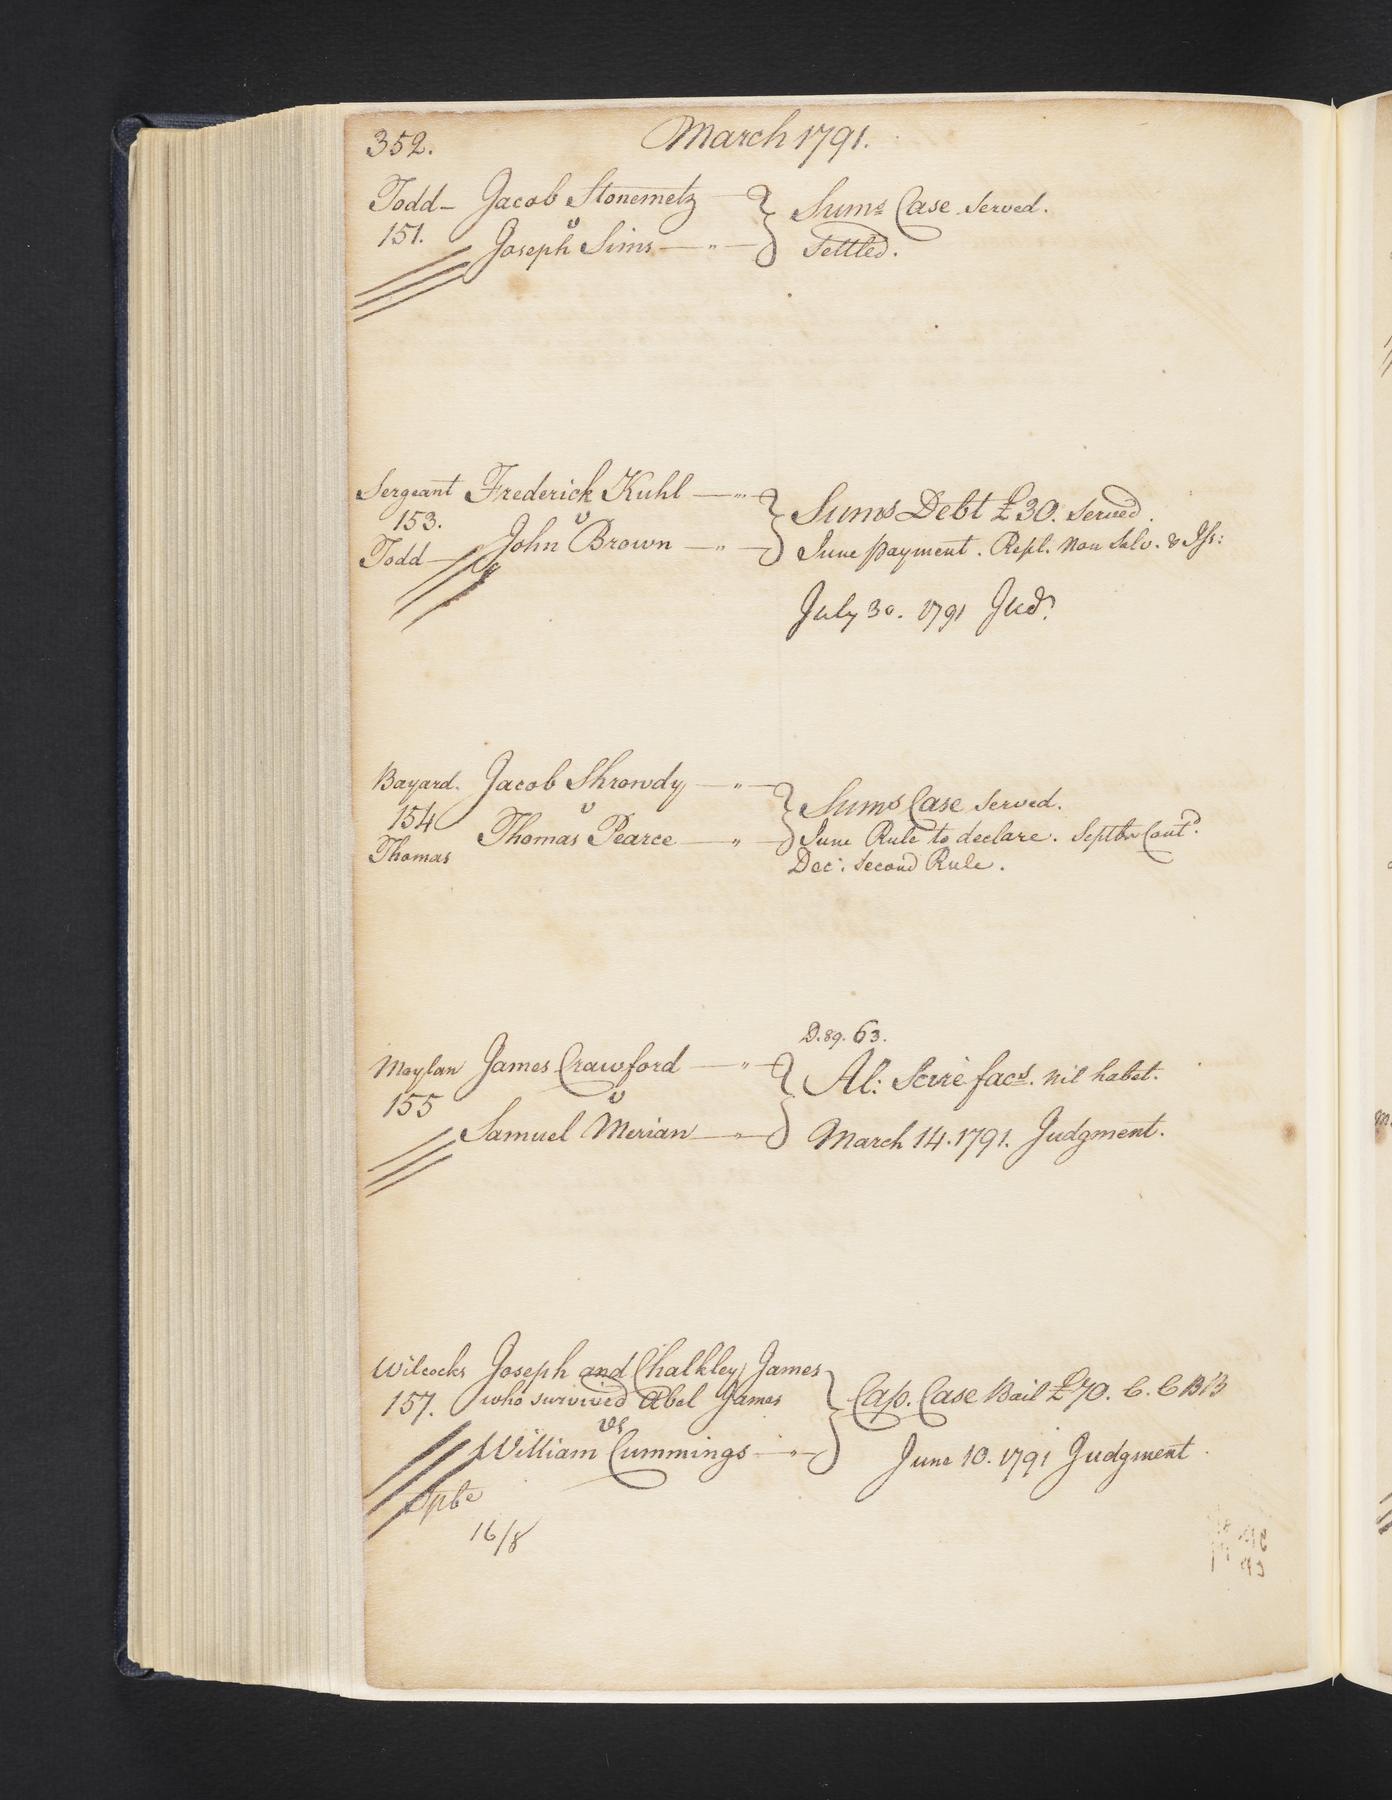 352. March 1791.
Todd — Jacob Stonemetz } Sums Case Served.
151. v
Joseph Sims — " — } Settled.
Sergeant Frederick Kuhl — " — } Sums Debt £30. served.
153. v
Todd — John Brown — " — } June payment. Repl. Non Solv. & Iss:
July 30. 1791 Jud.
Bayard. Jacob Shrowdy — " — } Sums Case Served.
154 v
Thomas Pearce — " — } June Rule to declare. Septbr Contd.
Thomas Dec: Second Rule.
D. 89. 63.
Moylan James Crawford — " — } Al: Scire facs. nil habet.
155 v
Samuel Merian — " — } March 14. 1791. Judgment.
Wilcocks Joseph and Chalkley James
157. who survived Abel James } Cap. Case Bail £70. C. C B B
vs
William Cummings — " — } June 10. 1791 Judgment.
16/8